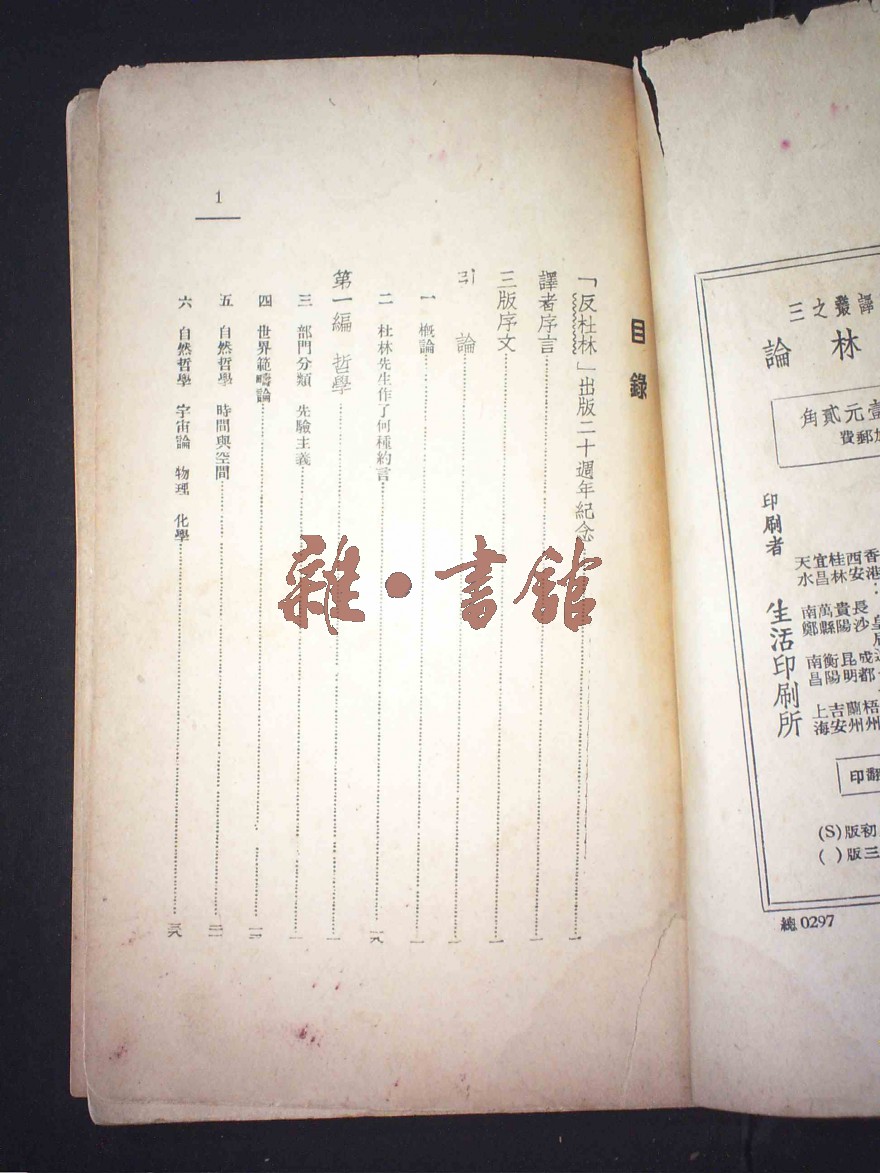 譯叢之三
林論
壹元貳角
郵費
印刷者 生活印刷所
香港 西安 桂林 宜昌 天水
長沙 貴陽 萬縣 南鄭
成都 昆明 衡陽 南昌
梧州 蘭州 吉安 上海
翻印
初版(S)
三版( )
總 0297
目錄
「反杜林」出版二十週年紀念 一
譯者序言 一
三版序文 一
引論 一
一 概論 一
二 杜林先生作了何種約言
第一編 哲學 一
三 部門分類 先驗主義 一
四 世界範疇論 一二
五 自然哲學 時間與空間
六 自然哲學 宇宙論 物理 化學
1
雜·書館